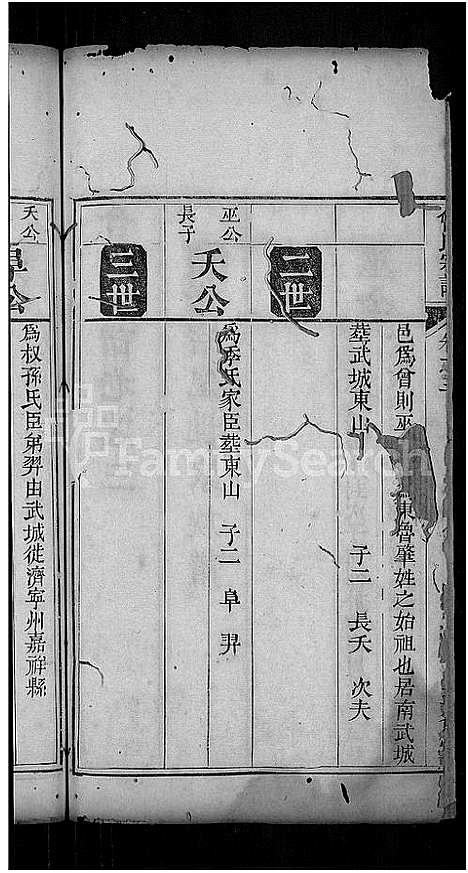 邑爲曾則巫 東魯肇姓之始祖也居南武城
葬武城東山 子二 長夭 次夫
二世
巫公
長子
夭公
爲季氏家臣葬東山 子二 阜 羿
三世
夭公
阜公
爲叔孫氏臣弟羿由武城徙濟寧州嘉祥縣
FamilySearch